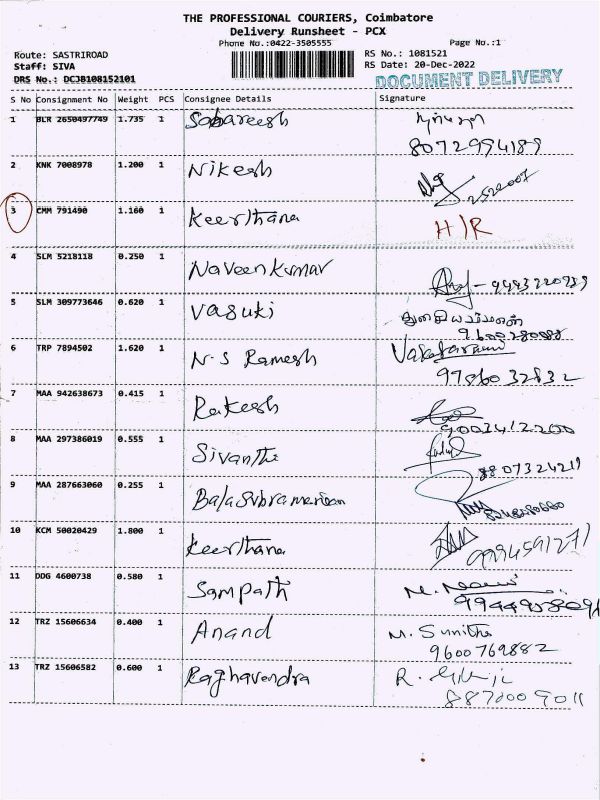 THE PROFESSIONAL COURIERS, Coimbatore
Delivery Runsheet - PCX
Phone No.:0422-3505555
Page No.:1
Route: SASTRIROAD
RS No.: 1081521
Staff: SIVA
RS Date: 20-Dec-2022
DRS No.: DCJB108152101
DOCUMENT DELIVERY
S No Consignment No Weight PCS Consignee Details Signature
1 BLR 2650497749 1.735 1 Sabareesh
8072994189
2 KNK 7008978 1.200 1 Nikesh
3 CMM 791490 1.160 1 Keerthana H/R
4 SLM 5218118 0.250 1 Naveen Kumar
5 SLM 309773646 0.620 1 Vasuki
9600280088
6 TRP 7894502 1.620 1 N-S Ramesh
7 MAA 942638673 0.415 1 Rakesh
9003412200
8 MAA 297386019 0.555 1 Sivanthi
8807324219
9 MAA 287663060 0.255 1 Balasubramanian
10 KCM 50020429 1.800 1 Keerthana
9994591271
11 DDG 4600738 0.580 1 Sampath
12 TRZ 15606634 0.400 1 Anand M. Sunitha
9600769882
13 TRZ 15606582 0.600 1 Raghavendra
8870009011